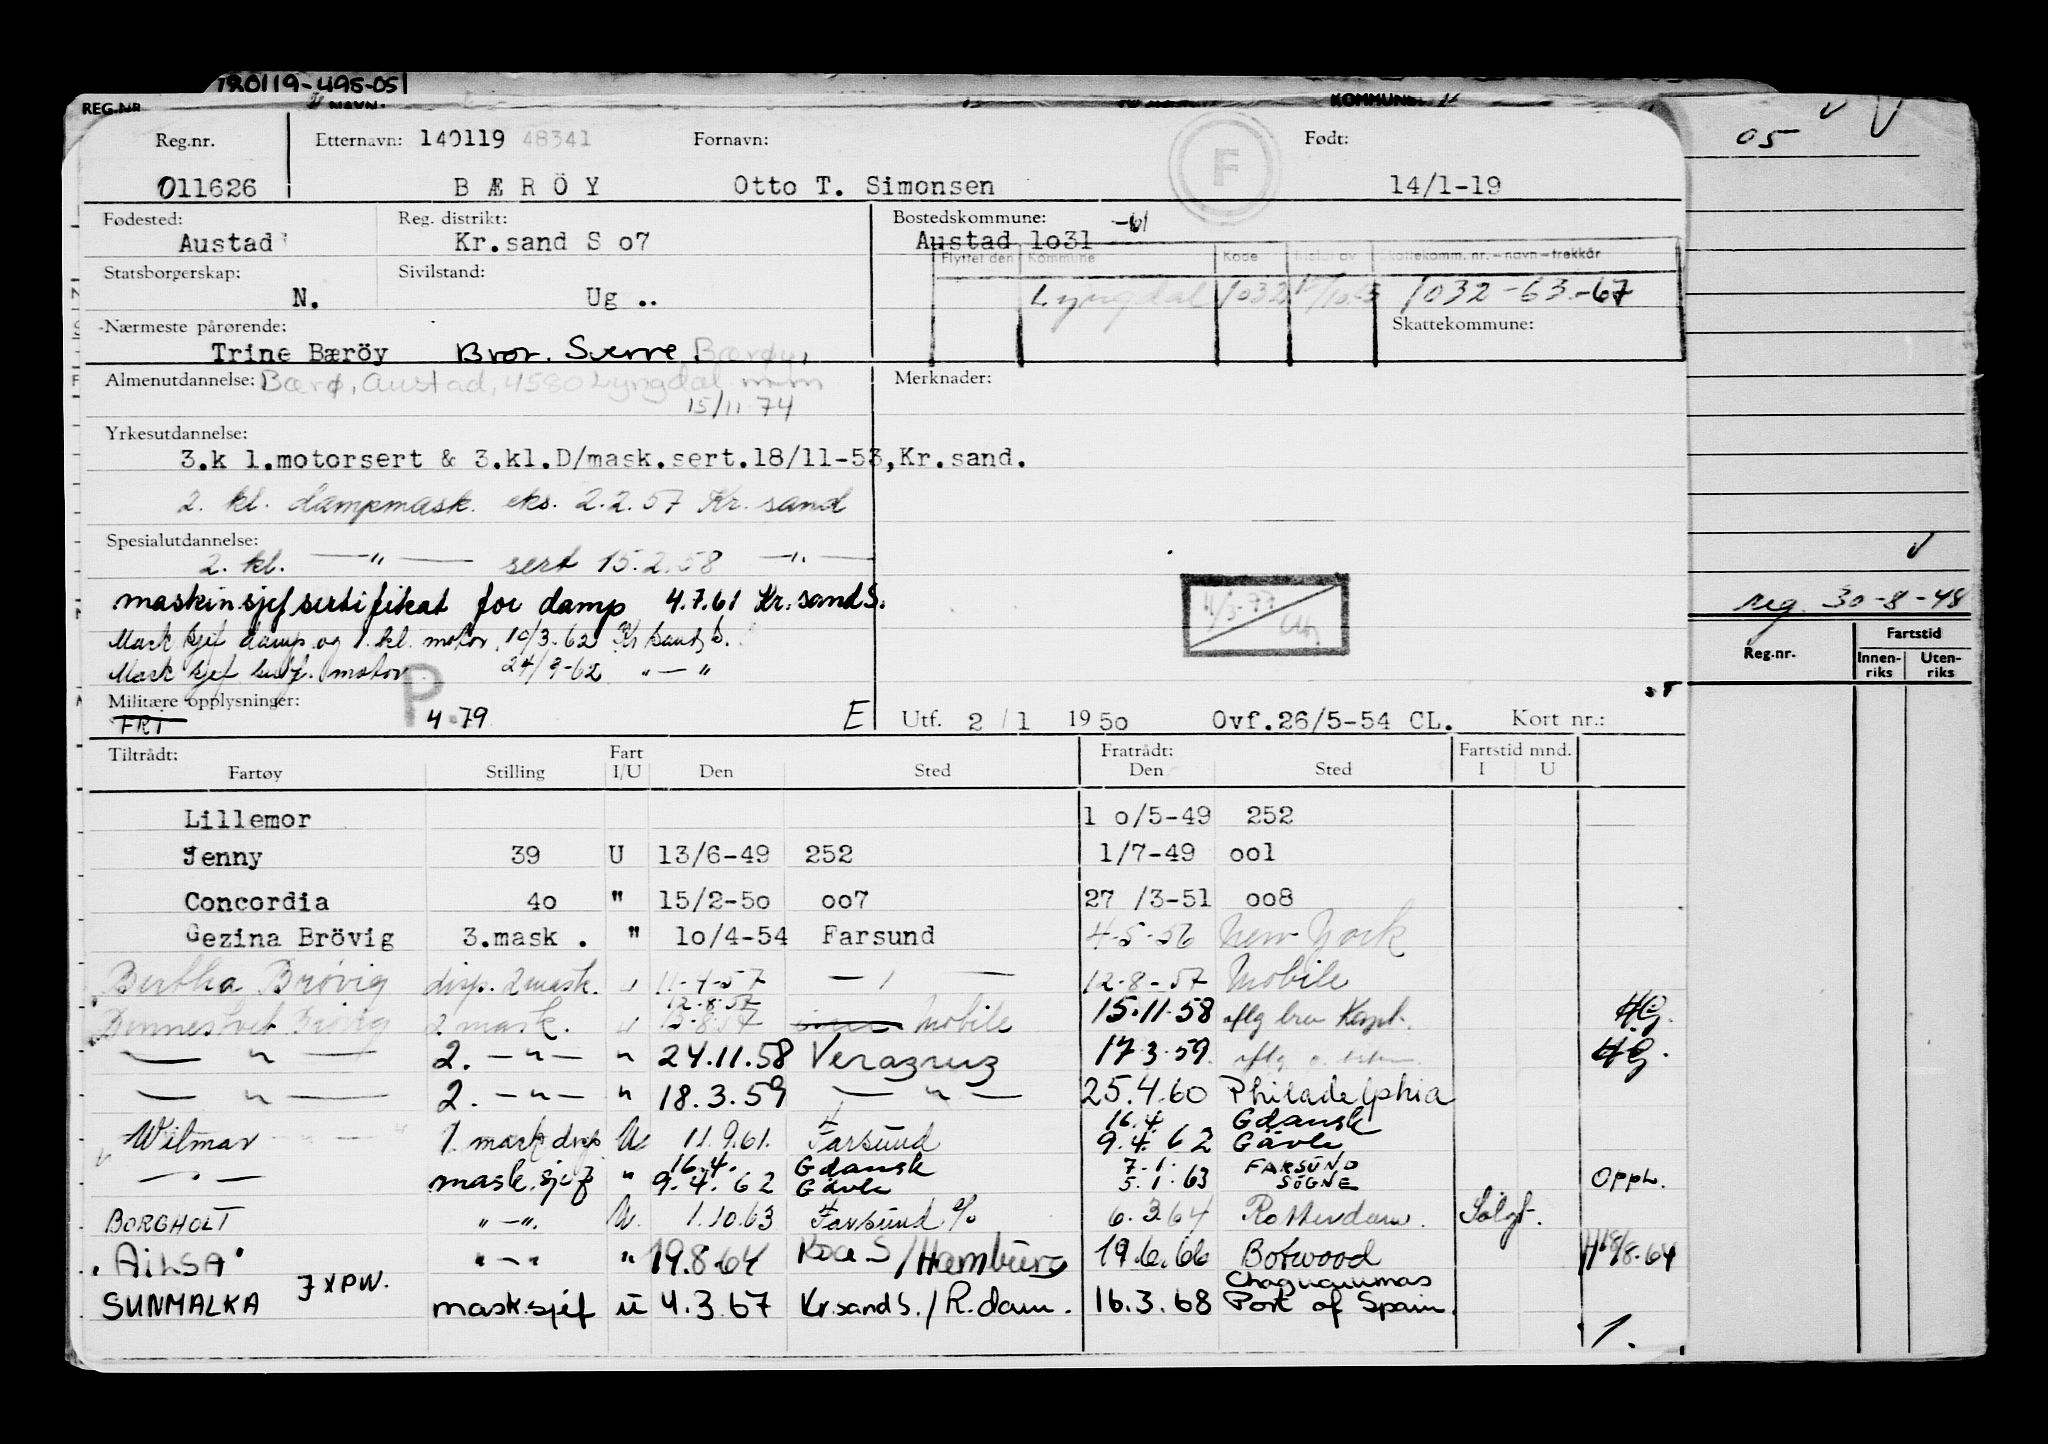 REG.NR NAVN. KOMMUNE
Reg.nr. Etternavn: 140119 48341 Fornavn: F Født:
011626 BÆRÖY Otto T. Simonsen 14/1-19
05
Fødested: Reg. distrikt: Bostedskommune: -61
Austad Kr.sand S o7 Austad 1o31
Flyttet den Kommune Kode Skattekomm. nr. – navn – trekkår
Statsborgerskap: Sivilstand:
N. Ug .. Lyngdal 1032 1032-63.-67
Nærmeste pårørende: Skattekommune:
Trine Bæröy Bror. Sverre Bærøy,
Almenutdannelse: Bærø, Austad, 4580 Lyngdal Merknader:
15/11-74
Yrkesutdannelse:
3.k l.motorsert & 3.kl.D/mask.sert.18/11-53,Kr.sand.
2. kl. dampmask. eks. 2.2.57 Kr. sand
Spesialutdannelse:
2. kl. —"— sert 15.2.58 —"—
maskinsjefsertifikat for damp 4.7.61 Kr.sand S.
Mask sjef damp og 1. kl. motor 10/3-62 Kr sand S.
Mask sjef sertf. motor 24/9-62 "—"
11/3-77
reg. 30-8-48
Reg.nr. Fartstid
Innen-riks Uten-riks
Militære opplysninger:
FRT P 4.79 E Utf. 2/1 1950 Ovf.26/5-54 CL. Kort nr.:
Tiltrådt: Fart Fratrådt: Fartstid mnd.
Fartøy Stilling I/U Den Sted Den Sted I U
Lillemor 1 o/5-49 252
Jenny 39 U 13/6-49 252 1/7-49 oo1
Concordia 4o " 15/2-5o oo7 27 /3-51 oo8
Gezina Brövig 3.mask . " 1o/4-54 Farsund 4-5-56 New York
Bertha Brøvig disp. 2 mask. " 11-4-57 — " — 12-8-57 Mobile
12-8-57
Brøvig 2 mask. " 13-8-57 Mobile 15.11.58 oflg brev Kapt. HG.
— " — 2. —"— " 24.11.58 Veracruz 17.3.59. oflg HG.
— " — 2. —"— " 18.3.59 — " — 25.4.60 Philadelphia
16.4. Gdansk
Wilmar 1. mask disp U 11.9.61. Farsund 9.4.62 Gävle
16.4. Gdansk 7.1. FARSUND
— " — mask.sjef " 9.4.62 Gävle 5.1.63 SÖGNE Opph.
BORGHOLT "—". U. 1.10.63 Farsund 6.3.64 Rotterdam. Solgt.
"AILSA" "—" " 19.8.64 S/Hamburg 19.6.66 Botwood 18/8-64
7 x PW. Chaguaramas
SUNMALKA mask.sjef u 4.3.67 Kr.sand S./R.dam. 16.3.68 Port of Spain.
1.